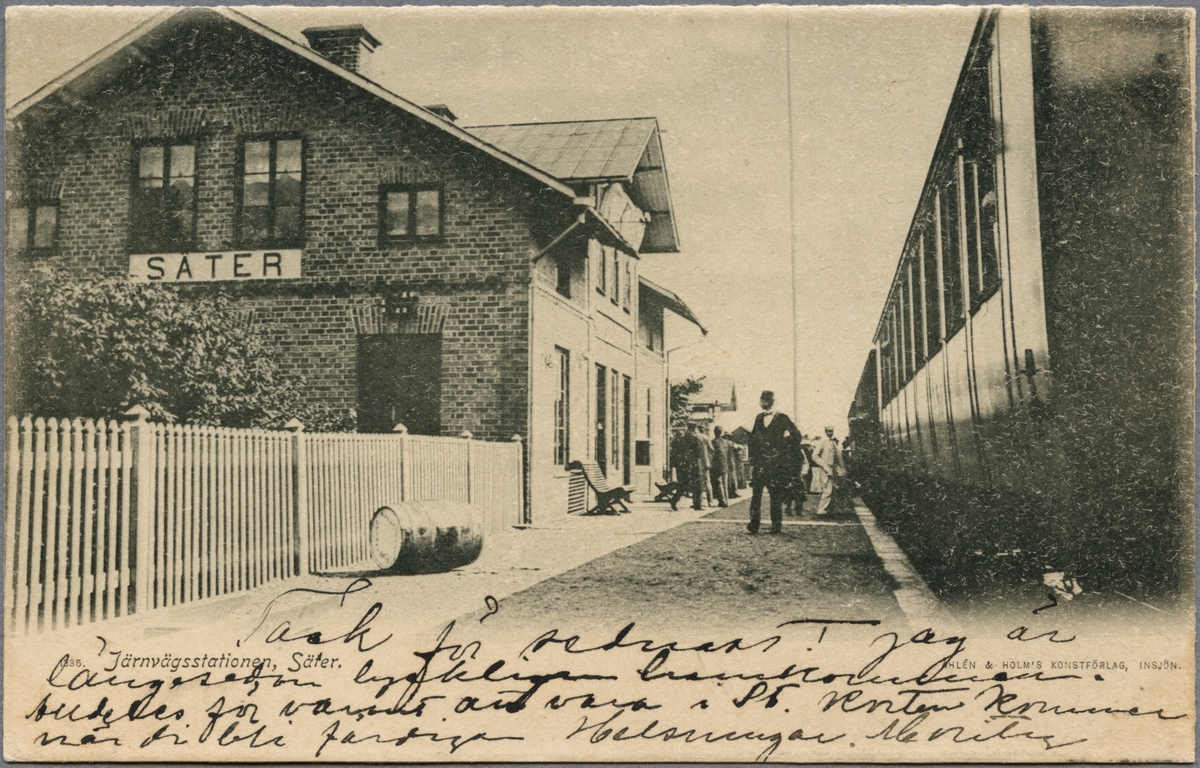 SÄTER
Tack för sednast! Jag är
1335. Järnvägsstationen, Säter.
ÅHLÉN & HOLM'S KONSTFÖRLAG, INSJÖN.
längesedan lyckligen hemkommen.
för varmt att vara i St. Korten kommer
när di bli färdiga Helsningar.